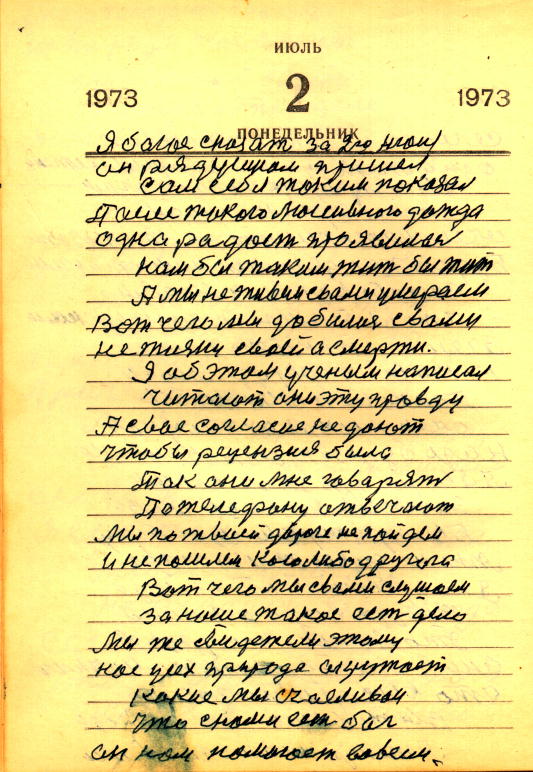 ИЮЛЬ
1973 2 1973
ПОНЕДЕЛЬНИК
Я богое сказат за 2го июля
он рядушком пришел
сам себя таким показал
После такого массивного дождя
одна радост проявилася
нам бы таким жит бы жит
А мы не живи с вами умераем
Вот чего мы добилися свами
не жизни своей а смерти.
Я об этом ученым написал
читают они эту правду
А свое согласие не дают
чтобы рецензия была
Так они мне говарят
По телефону отвечают
мы по твоей дороге не пойдем
и не пошлем кого либо другога
Вот чего мы свами слушаем
за наше такое ест дело
мы же свидетели этому
нас усех природа слушает
какие мы счасливаи
что снами ест бог
он нам помогает вовсем.